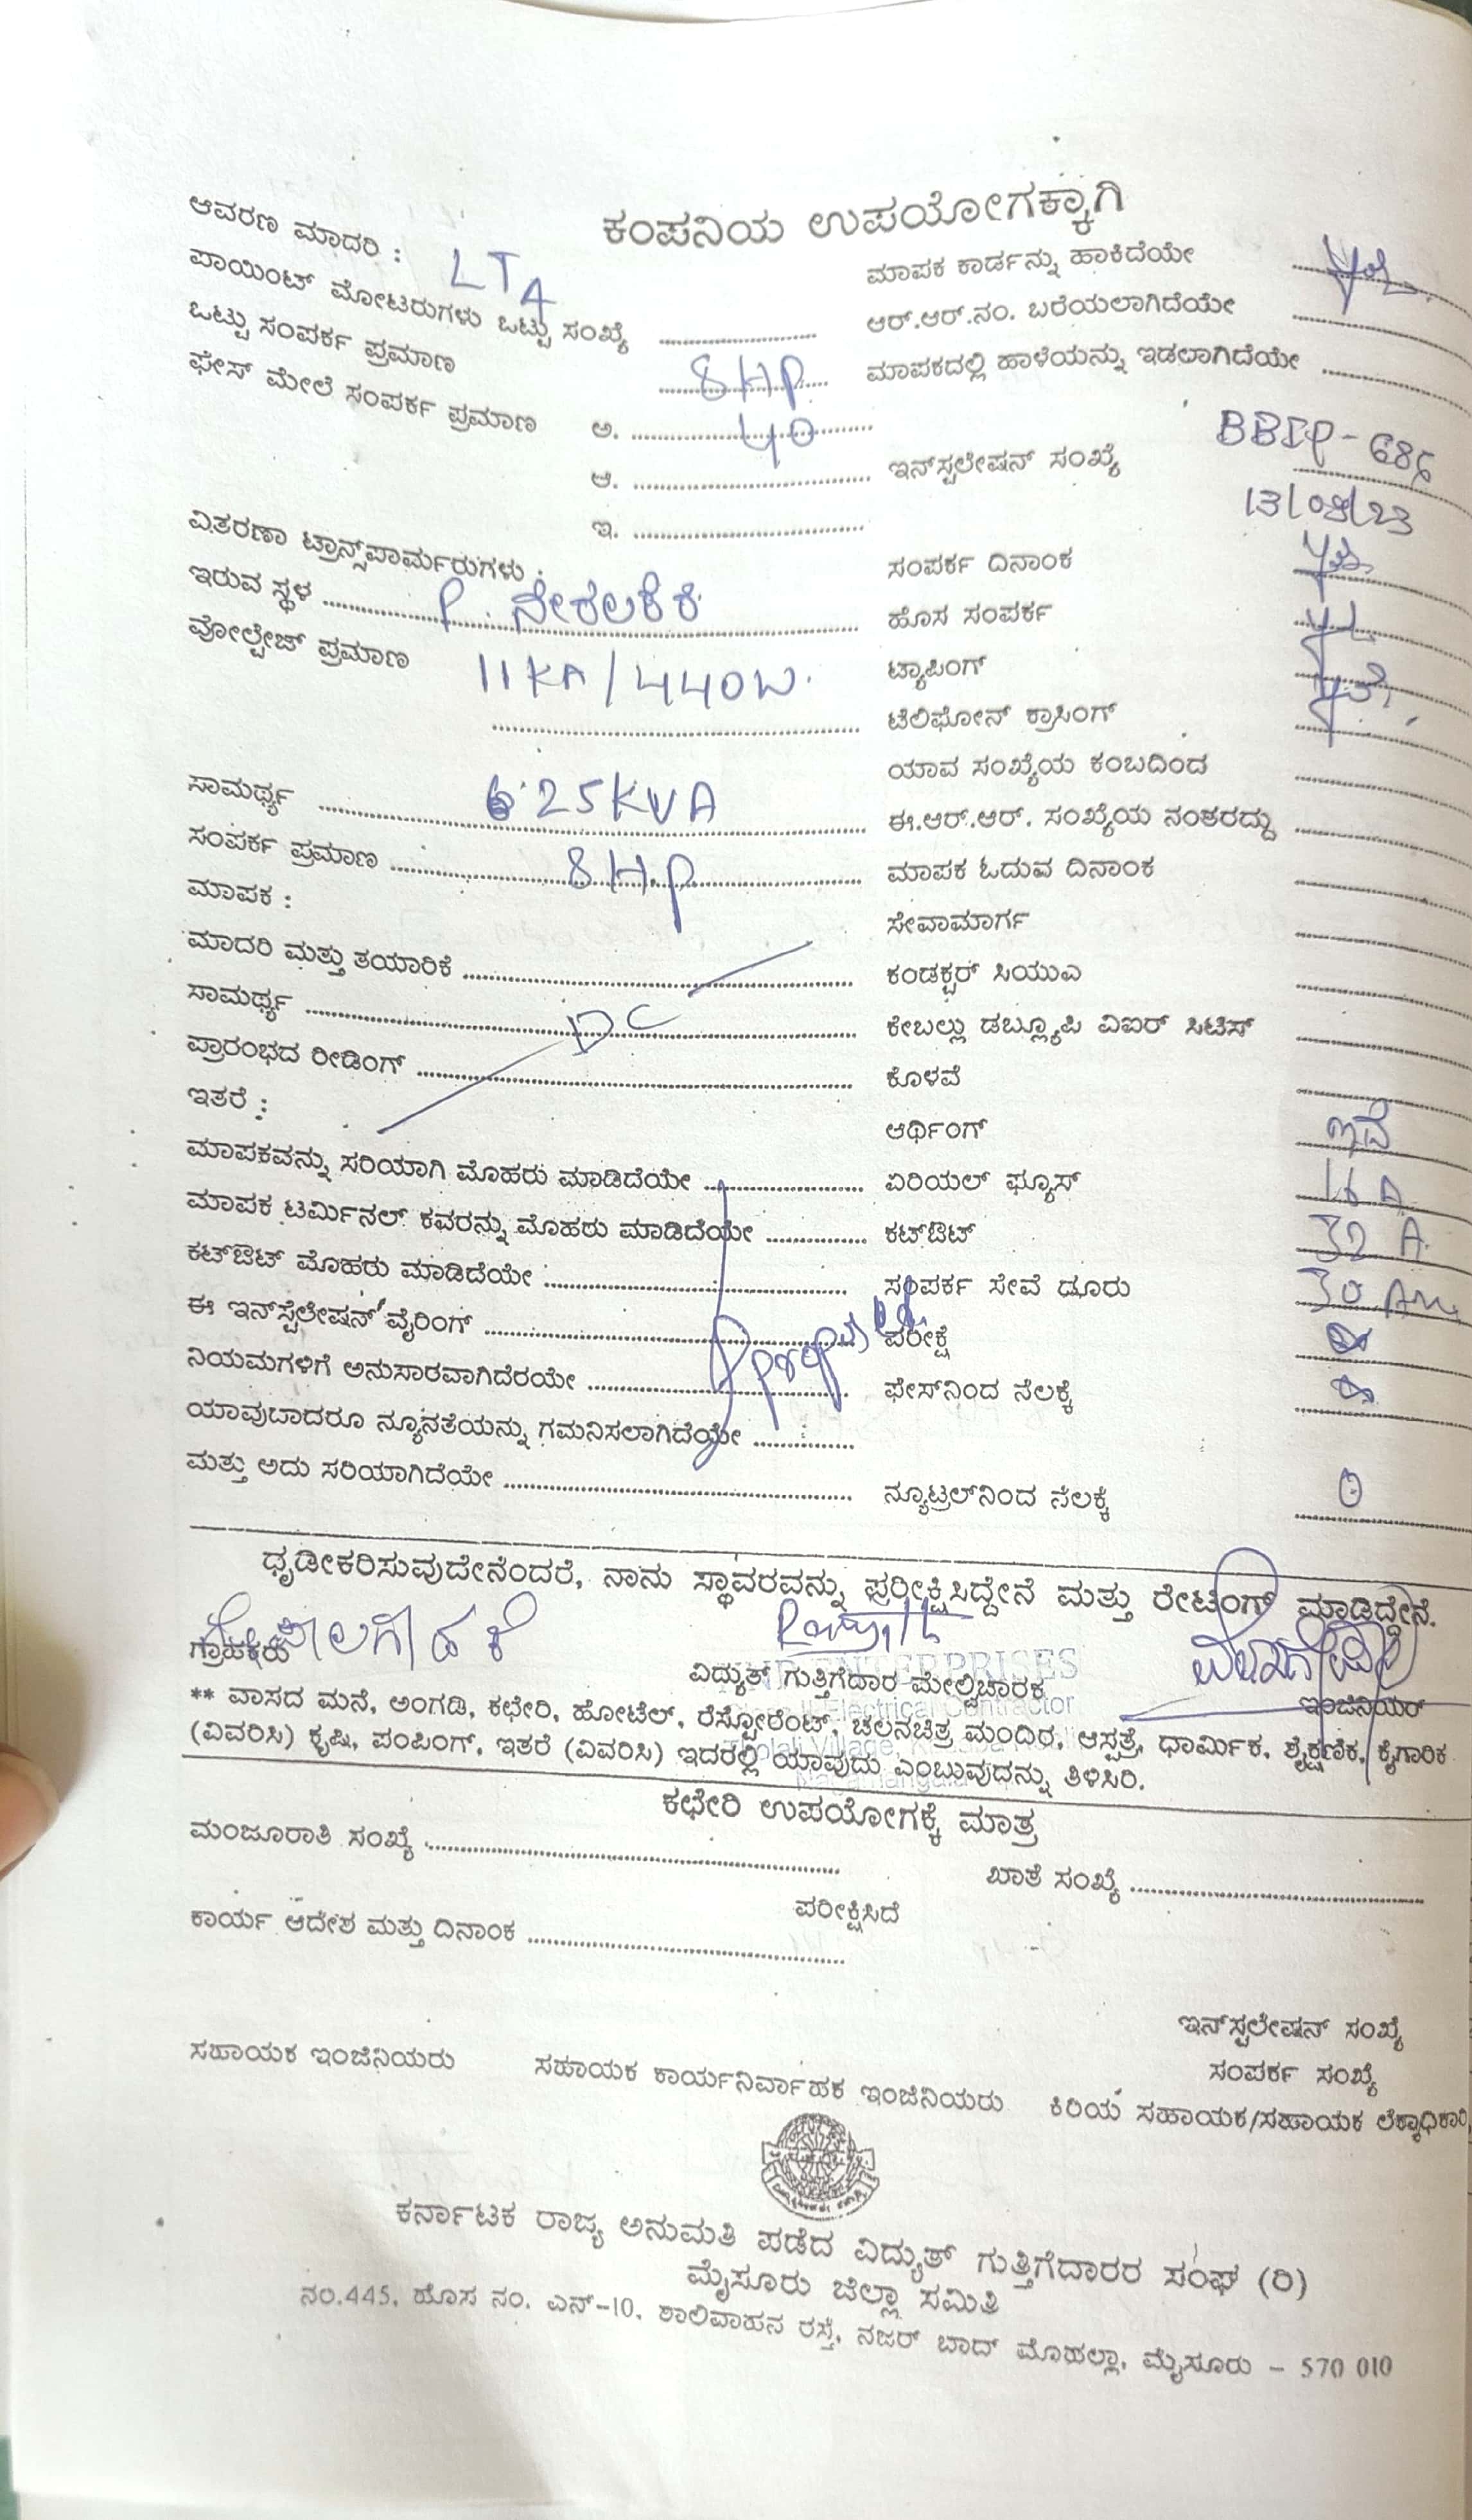 ಕಂಪನಿಯ ಉಪಯೋಗಕ್ಕಾಗಿ
ಆವರಣ ಮಾದರಿ : LT4
ಪಾಯಿಂಟ್ ಮೋಟರುಗಳು ಒಟ್ಟು ಸಂಖ್ಯೆ
ಒಟ್ಟು ಸಂಪರ್ಕ ಪ್ರಮಾಣ 8HP
ಫೇಸ್ ಮೇಲೆ ಸಂಪರ್ಕ ಪ್ರಮಾಣ ಅ. 40
ಆ.
ಇ.
ವಿತರಣಾ ಟ್ರಾನ್ಸ್‌ಪಾರ್ಮರುಗಳು :
ಇರುವ ಸ್ಥಳ P. ನೇರಲಕೆರೆ
ವೋಲ್ಟೇಜ್ ಪ್ರಮಾಣ
ಸಾಮರ್ಥ್ಯ 6.25KVA
ಸಂಪರ್ಕ ಪ್ರಮಾಣ 8H.P
ಮಾಪಕ :
ಮಾದರಿ ಮತ್ತು ತಯಾರಿಕೆ
ಸಾಮರ್ಥ್ಯ DC
ಪ್ರಾರಂಭದ ರೀಡಿಂಗ್
ಇತರೆ :
ಮಾಪಕವನ್ನು ಸರಿಯಾಗಿ ಮೊಹರು ಮಾಡಿದೆಯೇ
ಮಾಪಕ ಟರ್ಮಿನಲ್ ಕವರನ್ನು ಮೊಹರು ಮಾಡಿದೆಯೇ
ಕಟ್‌ಔಟ್ ಮೊಹರು ಮಾಡಿದೆಯೇ
ಈ ಇನ್‌ಸ್ಟೆಲೇಷನ್ ವೈರಿಂಗ್
ನಿಯಮಗಳಿಗೆ ಅನುಸಾರವಾಗಿದೆರಯೇ
ಯಾವುದಾದರೂ ನ್ಯೂನತೆಯನ್ನು ಗಮನಿಸಲಾಗಿದೆಯೇ
ಮತ್ತು ಅದು ಸರಿಯಾಗಿದೆಯೇ
ಮಾಪಕ ಕಾರ್ಡನ್ನು ಹಾಕಿದೆಯೇ
ಆರ್.ಆರ್.ನಂ. ಬರೆಯಲಾಗಿದೆಯೇ
ಮಾಪಕದಲ್ಲಿ ಹಾಳೆಯನ್ನು ಇಡಲಾಗಿದೆಯೇ
ಇನ್‌ಸ್ಟಲೇಷನ್ ಸಂಖ್ಯೆ
ಸಂಪರ್ಕ ದಿನಾಂಕ 13/08/23
ಹೊಸ ಸಂಪರ್ಕ
ಟ್ಯಾಪಿಂಗ್
ಟೆಲಿಫೋನ್ ಕ್ರಾಸಿಂಗ್
ಯಾವ ಸಂಖ್ಯೆಯ ಕಂಬದಿಂದ
ಈ.ಆರ್.ಆರ್. ಸಂಖ್ಯೆಯ ನಂತರದ್ದು
ಮಾಪಕ ಓದುವ ದಿನಾಂಕ
ಸೇವಾಮಾರ್ಗ
ಕಂಡಕ್ಟರ್ ಸಿಯುಎ
ಕೇಬಲ್ಲು ಡಬ್ಲ್ಯೂಪಿ ವಿಐಆರ್ ಸಿಟಿಸ್
ಕೊಳವೆ
ಆರ್ಥಿಂಗ್ ಇದೆ
ಏರಿಯಲ್ ಫ್ಯೂಸ್ 16 A
ಕಟ್‌ಔಟ್ 32 A
ಸಂಪರ್ಕ ಸೇವೆ ದೂರು
ಪರೀಕ್ಷೆ
ಫೇಸ್‌ನಿಂದ ನೆಲಕ್ಕೆ
ನ್ಯೂಟ್ರಲ್‌ನಿಂದ ನೆಲಕ್ಕೆ
ಧೃಡೀಕರಿಸುವುದೇನೆಂದರೆ, ನಾನು ಸ್ಥಾವರವನ್ನು ಪ್ರರೀಕ್ಷಿಸಿದ್ದೇನೆ ಮತ್ತು ರೇಟಿಂಗ್ ಮಾಡಿದ್ದೇನೆ.
ಗ್ರಾಹಕರು ವಿದ್ಯುತ್ ಗುತ್ತಿಗೆದಾರ ಮೇಲ್ವಿಚಾರಕ ಇಂಜಿನಿಯರ್
** ವಾಸದ ಮನೆ, ಅಂಗಡಿ, ಕಛೇರಿ, ಹೋಟೆಲ್, ರೆಸ್ಟೋರೆಂಟ್, ಚಲನಚಿತ್ರ ಮಂದಿರ, ಆಸ್ಪತ್ರೆ, ಧಾರ್ಮಿಕ, ಶೈಕ್ಷಣಿಕ, ಕೈಗಾರಿಕ
(ವಿವರಿಸಿ) ಕೃಷಿ, ಪಂಪಿಂಗ್, ಇತರೆ (ವಿವರಿಸಿ) ಇದರಲ್ಲಿ ಯಾವುದು ಎಂಬುವುದನ್ನು ತಿಳಿಸಿರಿ.
ಕಛೇರಿ ಉಪಯೋಗಕ್ಕೆ ಮಾತ್ರ
ಮಂಜೂರಾತಿ ಸಂಖ್ಯೆ ಖಾತೆ ಸಂಖ್ಯೆ
ಪರೀಕ್ಷಿಸಿದೆ
ಕಾರ್ಯ ಆದೇಶ ಮತ್ತು ದಿನಾಂಕ
ಇನ್‌ಸ್ಟಲೇಷನ್ ಸಂಖ್ಯೆ
ಸಂಪರ್ಕ ಸಂಖ್ಯೆ
ಸಹಾಯಕ ಇಂಜಿನಿಯರು ಸಹಾಯಕ ಕಾರ್ಯನಿರ್ವಾಹಕ ಇಂಜಿನಿಯರು ಕಿರಿಯ ಸಹಾಯಕ/ಸಹಾಯಕ ಲೆಕ್ಕಾಧಿಕಾರಿ
ಕರ್ನಾಟಕ ರಾಜ್ಯ ಅನುಮತಿ ಪಡೆದ ವಿದ್ಯುತ್ ಗುತ್ತಿಗೆದಾರರ ಸಂಘ (ರಿ)
ಮೈಸೂರು ಜಿಲ್ಲಾ ಸಮಿತಿ
ನಂ.445, ಹೊಸ ನಂ. ಎನ್-10, ಶಾಲಿವಾಹನ ರಸ್ತೆ, ನಜರ್ ಬಾದ್ ಮೊಹಲ್ಲಾ, ಮೈಸೂರು – 570 010